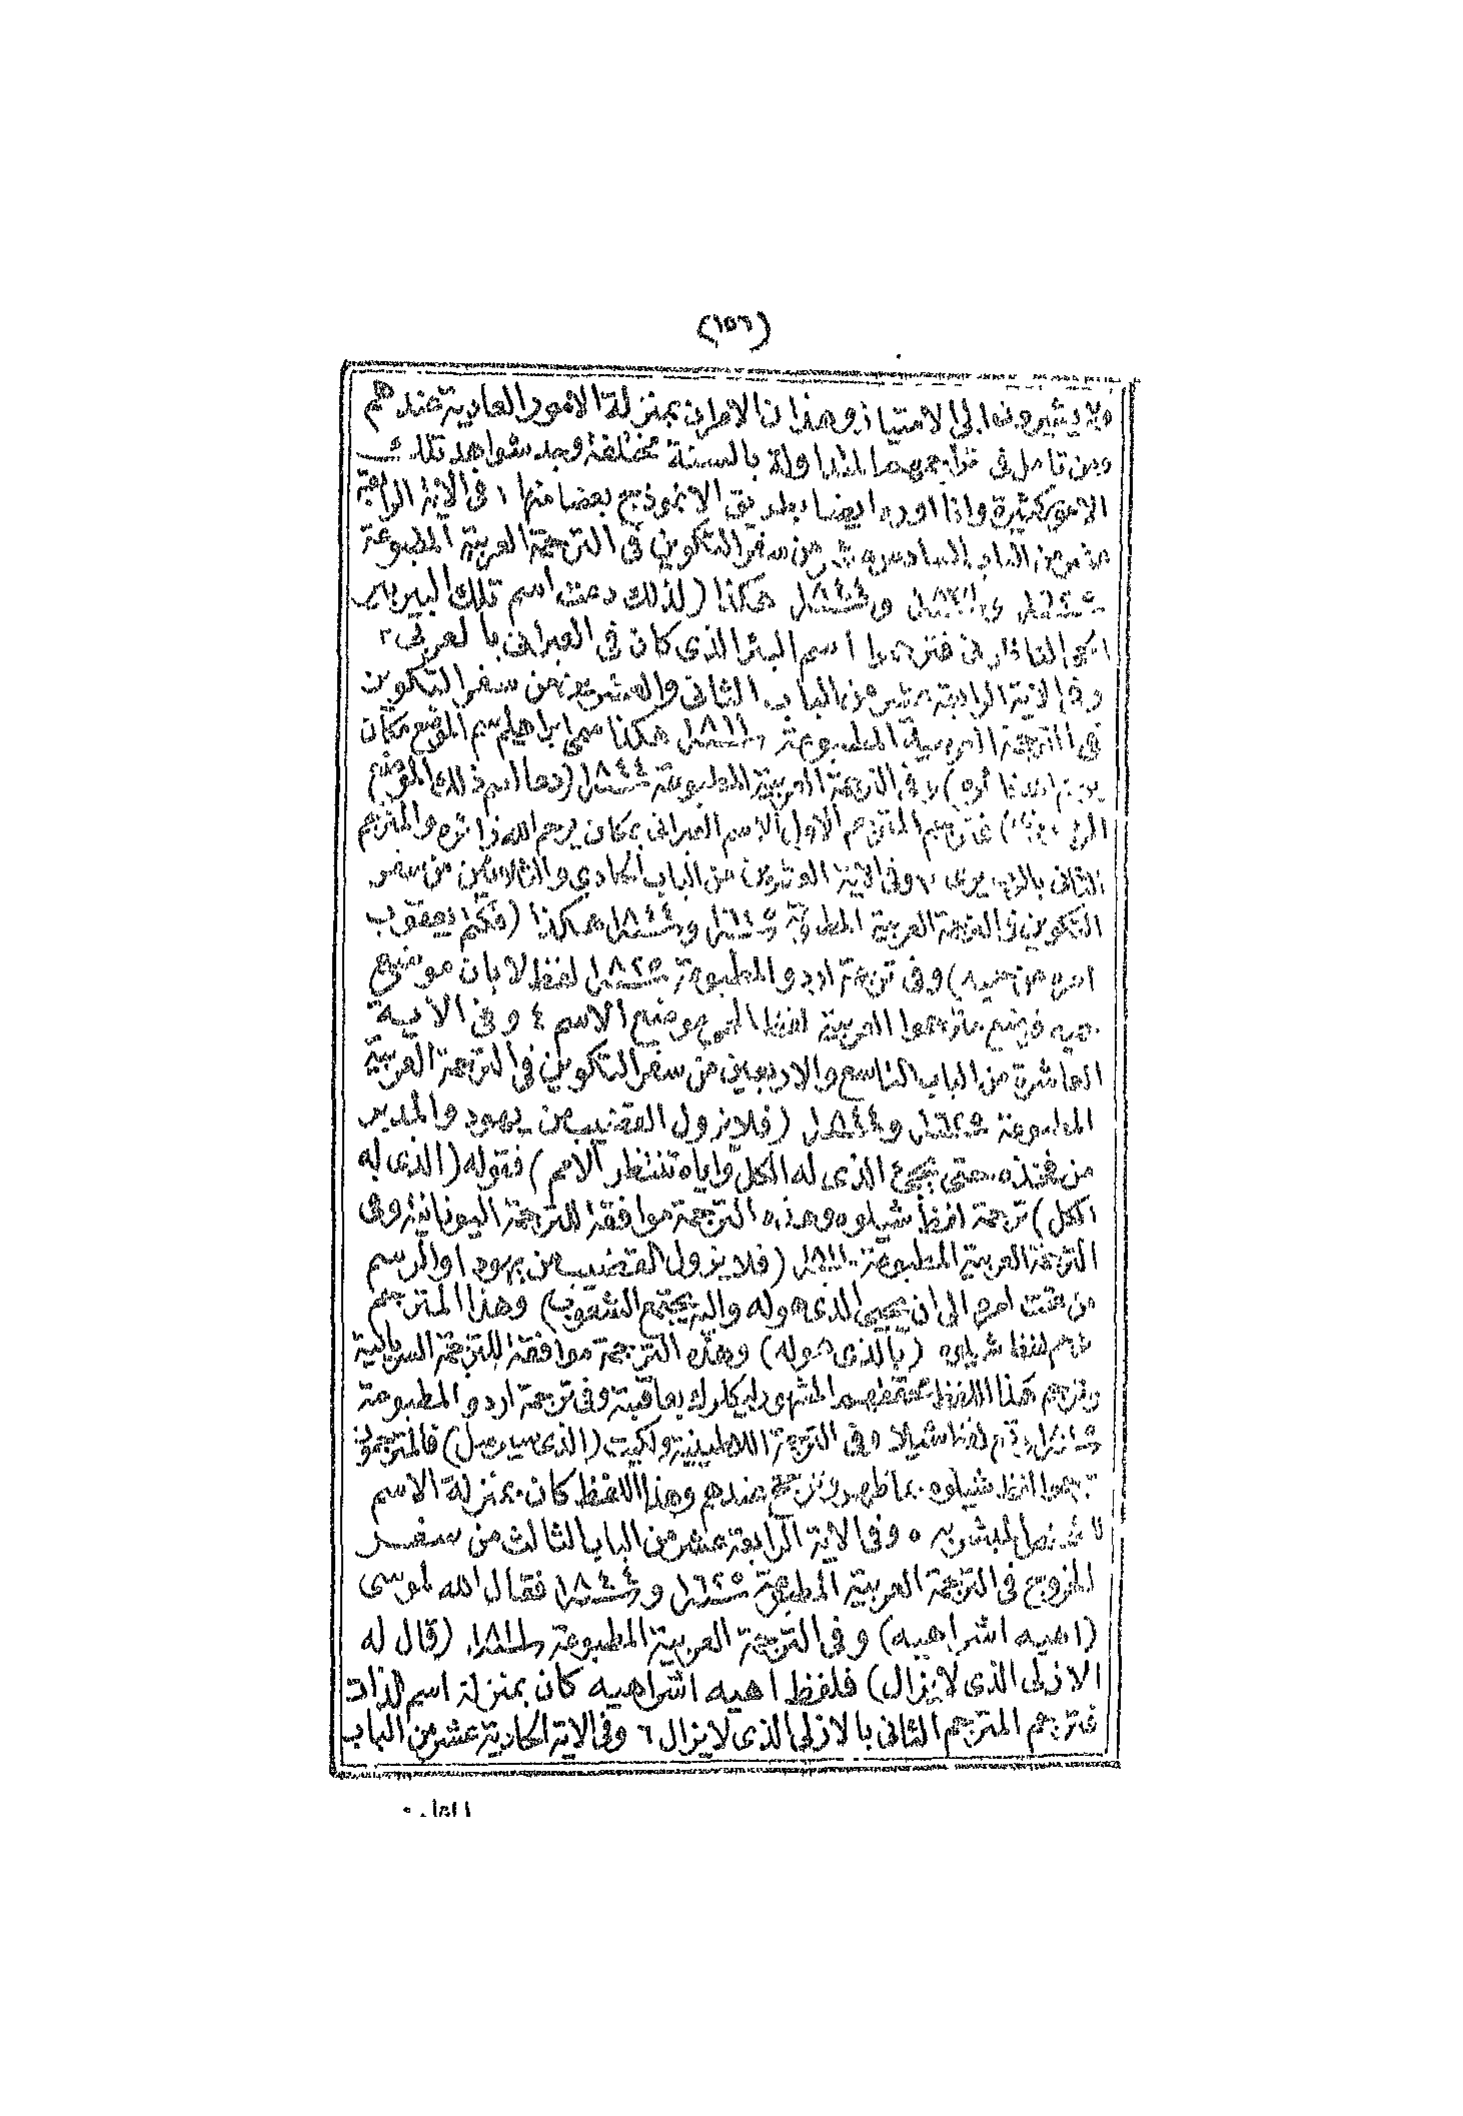 (١٥٦)
ولا يشيرون الى الامتياز وهذان الامران بمنزلة الامور العادية عندهم
ومن تامل فى تراجمهم المتداولة بالسنة مختلفة وجد شواهد تلك
الامور كثيرة وانا اورد ايضا بطريق الانموذج بعضا منها ١ فى الاية الرابعة
عشر من الباب السادس عشر من سفر التكوين فى الترجمة العربية المطبوعة
سنة ١٦٢٥ و سنة ١٨٤٤ هكذا (لذلك دعت اسم تلك البير بير
الحى الناظرنى فترجموا اسم البئر الذى كان فى العبرانى بالعربى ٢
وفى الاية الرابعة عشر من الباب الثانى والعشرين من سفر التكوين
فى الترجمة العربية المطبوعة سنة ١٨١١ هكذا سمى ابراهيم اسم الموضع مكان
يرحم الله زائره) وفى الترجمة العربية المطبوعة سنة ١٨٤٤ (دعا اسم ذلك الموضع
الرب يرى) فترجم المترجم الاول الاسم العبرانى بمكان يرحم الله زائره والمترجم
الثانى بالرب يرى ٣ وفى الاية العشرين من الباب الحادى والثلاثين من سفر
التكوين فى الترجمة العربية المطبوعة سنة ١٦٢٥ وسنة ١٨٤٤ هكذا (فكتم يعقوب
امره من حميه) وفى ترجمة اردو المطبوعة سنة ١٨٢٥ لفظ لابان موضع
حميه فوضع مترجموا العربية لفظ الحمو موضع الاسم ٤ وفى الاية
العاشرة من الباب التاسع والاربعين من سفر التكوين فى الترجمة العربية
المطبوعة سنة ١٦٢٥ وسنة ١٨٤٤ (فلا يزول القضيب من يهود والمدبر
من فخذه حتى يجئ الذى له الكل واياه تنتظر الامم) فقوله (الذى له
الكل) ترجمة لفظ شيلوه وهذه الترجمة موافقة للترجمة اليونانية وفى
الترجمة العربية المطبوعة سنة ١٨١١ (فلا يزول القضيب من يهودا والرسم
من تحت امره الى ان يجيئ الذى هو له واليه يجتمع الشعوب) وهذا المترجم
ترجم لفظ شيلوه (بالذى هو له) وهذه الترجمة موافقة للترجمة السريانية
وترجم هذا اللفظ محققهم المشهور ليكلرك بعاقبته وفى ترجمة اردو المطبوعة
سنة ١٨٢٥ وقع لفظ شيلا وفى الترجمة اللاطينية ولكيت (الذى سيرسل) فالمترجمون
ترجموا لفظ شيلوه بما ظهر وترجح عندهم وهذا اللفظ كان بمنزلة الاسم
للشخص المبشر به ٥ وفى الاية الرابعة عشر من الباب الثالث من سفر
الخروج فى الترجمة العربية المطبوعة سنة ١٦٢٥ وسنة ١٨٤٤ فقال الله لموسى
(اهيه اشراهيه) وفى الترجمة العربية المطبوعة سنة ١٨١١ (قال له
الازلى الذى لايزال) فلفظ اهيه اشراهيه كان بمنزلة اسم الذات
فترجم المترجم الثانى بالازلى الذى لايزال ٦ وفى الاية الحادية عشر من الباب